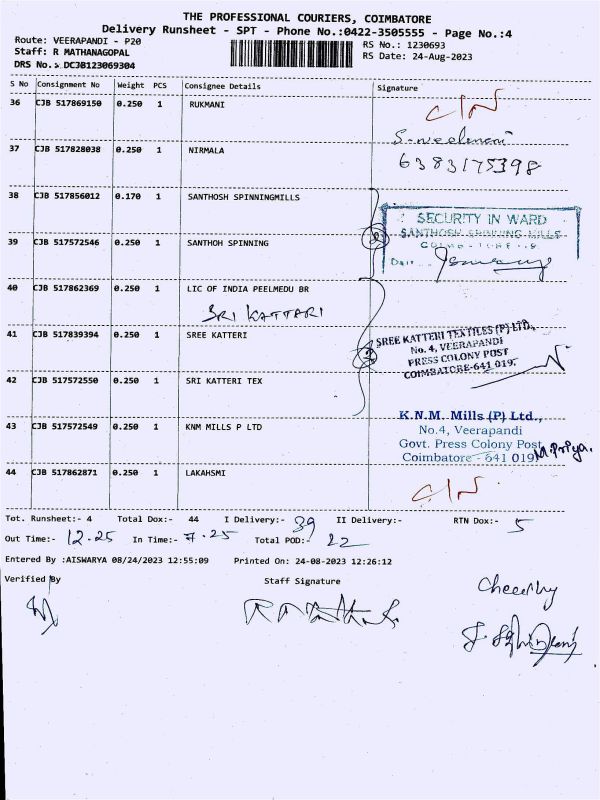 THE PROFESSIONAL COURIERS, COIMBATORE
Delivery Runsheet - SPT - Phone No.:0422-3505555 - Page No.:4
Route: VEERAPANDI - P20
Staff: R MATHANAGOPAL
DRS No.: DCJB123069304
RS No.: 1230693
RS Date: 24-Aug-2023
S No Consignment No Weight PCS Consignee Details Signature
36 CJB 517869150 0.250 1 RUKMANI
C/N
37 CJB 517828038 0.250 1 NIRMALA
6383175398
38 CJB 517856012 0.170 1 SANTHOSH SPINNINGMILLS
SECURITY IN WARD
SANTHOSH SPINNING MILLS
39 CJB 517572546 0.250 1 SANTHOH SPINNING
40 CJB 517862369 0.250 1 LIC OF INDIA PEELMEDU BR
SRI KATTARI
41 CJB 517839394 0.250 1 SREE KATTERI
SREE KATTERI TEXTILES (P) LTD.,
No. 4, VEERAPANDI
PRESS COLONY POST
COIMBATORE-641 019.
42 CJB 517572550 0.250 1 SRI KATTERI TEX
43 CJB 517572549 0.250 1 KNM MILLS P LTD
K.N.M. Mills (P) Ltd.,
No.4, Veerapandi
Govt. Press Colony Post
Coimbatore - 641 019
M. Priya.
44 CJB 517862871 0.250 1 LAKAHSMI
C/N
Tot. Runsheet:- 4 Total Dox:- 44 I Delivery:- 39 II Delivery:- RTN Dox:- 5
Out Time:- 12.25 In Time:- 7.25 Total POD:- 22
Entered By :AISWARYA 08/24/2023 12:55:09 Printed On: 24-08-2023 12:26:12
Verified By Staff Signature